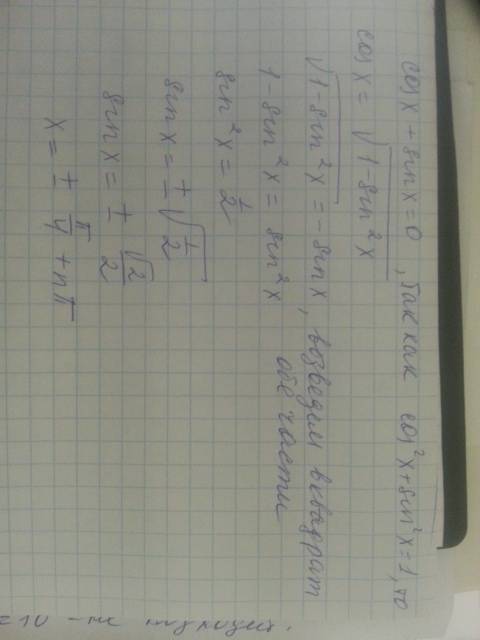 cosx + sinx = 0, так как cos²x + sin²x = 1, то
cosx = √(1-sin²x)
√(1-sin²x) = -sinx, возведем в квадрат
обе части
1-sin²x = sin²x
sin²x = 1/2
sinx = ±√(1/2)
sinx = ± √2/2
x = ± π/4 + nπ
=10 - не